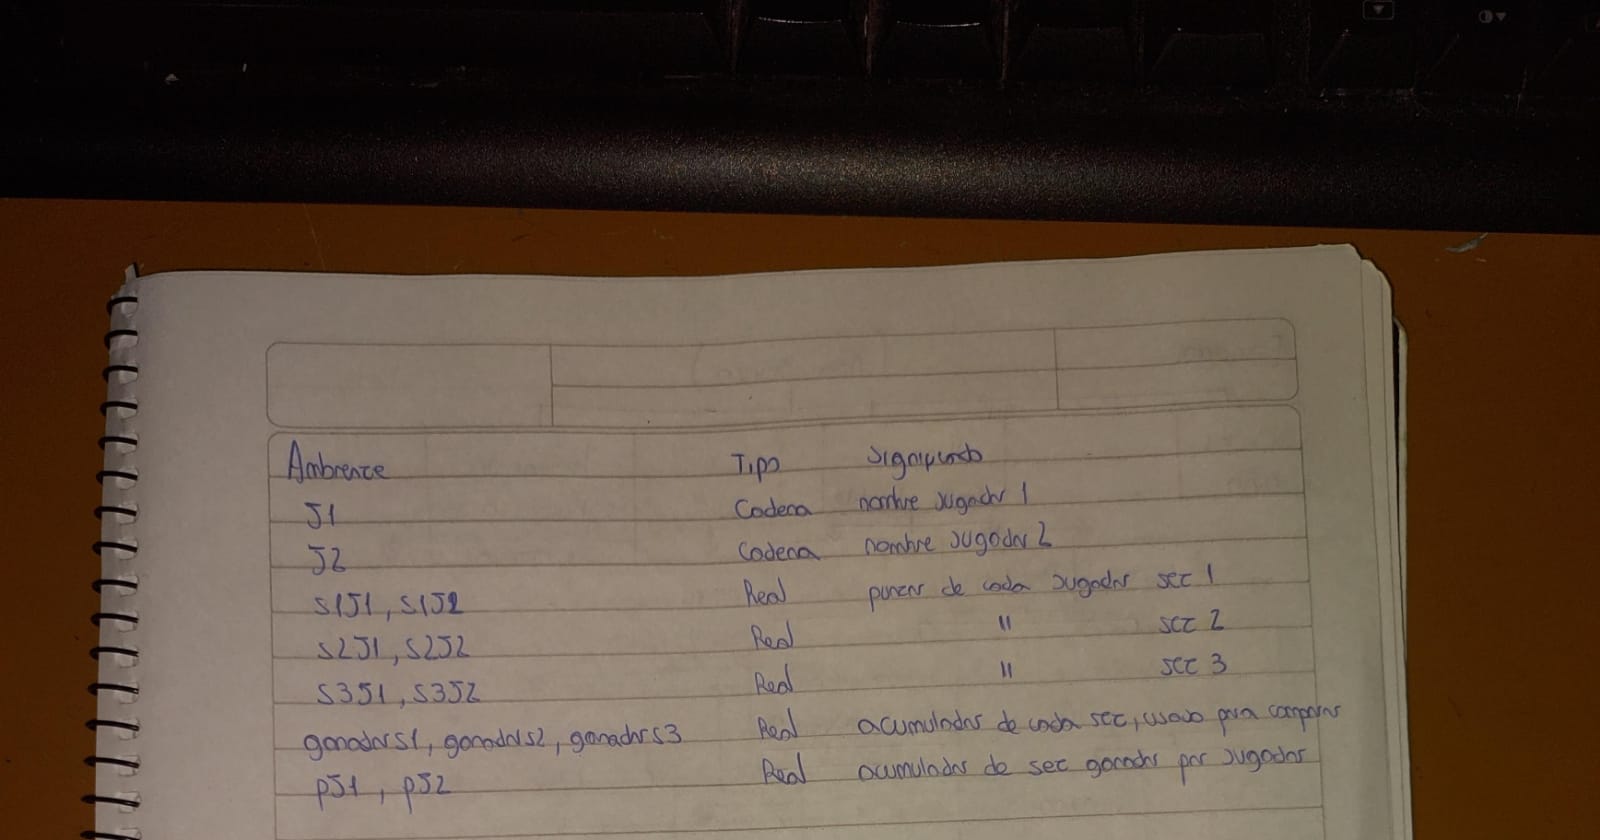 Ambiente Tipo Significado
J1 Cadena nombre jugador 1
J2 Cadena nombre jugador 2
S1J1, S1J2 Real puntos de cada jugador set 1
S2J1, S2J2 Real " set 2
S3J1, S3J2 Real " set 3
ganadorS1, ganadorS2, ganadorS3 Real acumulador de cada set, usado para comparar
pJ1, pJ2 Real acumulador de set ganados por jugador